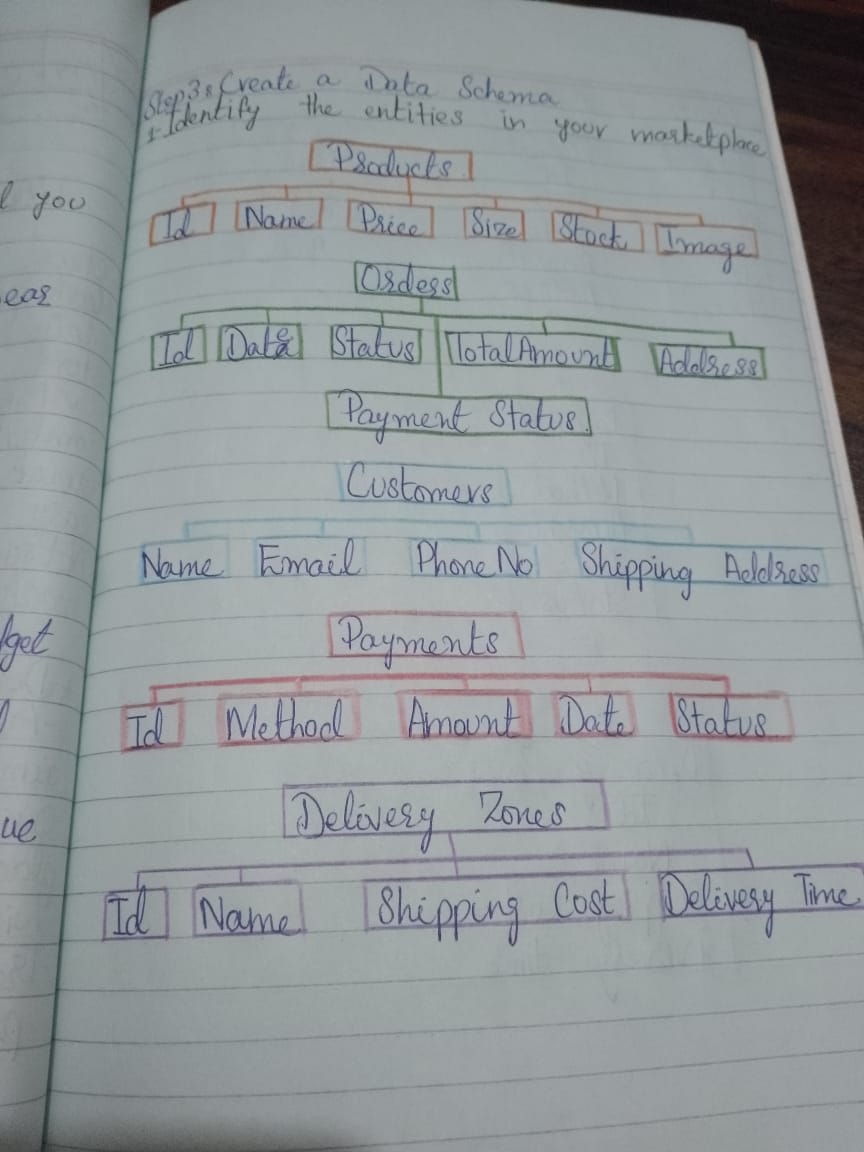 Step3: Create a Data Schema
1- Identify the entities in your marketplace
Products
Id Name Price Size Stock Image
Orders
Id Date Status TotalAmount Address
Payment Status
Customers
Name Email PhoneNo Shipping Address
Payments
Id Method Amount Date Status
Delivery Zones
Id Name Shipping Cost Delivery Time
you
get
ue